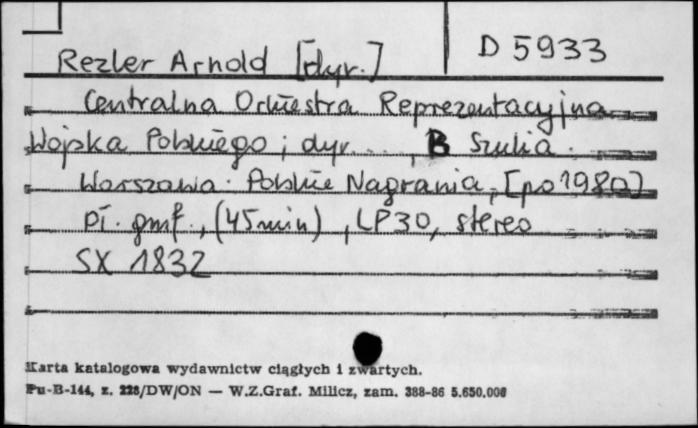 D 5933
Rezler Arnold [dyr.]
Centralna Orkiestra Reprezentacyjna
Wojska Polskiego ; dyr. ..., B Szulia.
Warszawa : Polskie Nagrania, [po 1980]
pł. gmf., (45 min), LP30, stereo
SX 1832
Karta katalogowa wydawnictw ciągłych i zwartych.
Pu-B-144, z. 228/DW/ON — W.Z.Graf. Milicz, zam. 388-86 5.650.000